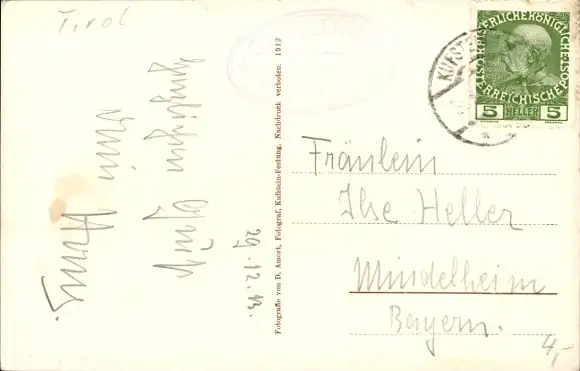 Tirol
herzlichen
Gruß
Dein
Hans.
29.12.13.
Fotografie von D. Amort, Fotograf, Kufstein-Festung. Nachdruck verboten. 1912
KUFSTEIN
KAISERLICHE KÖNIGLICHE ÖSTERREICHISCHE POST
5 HELLER 5
Fräulein
Ilse Heller
Mindelheim
Bayern.
4,-